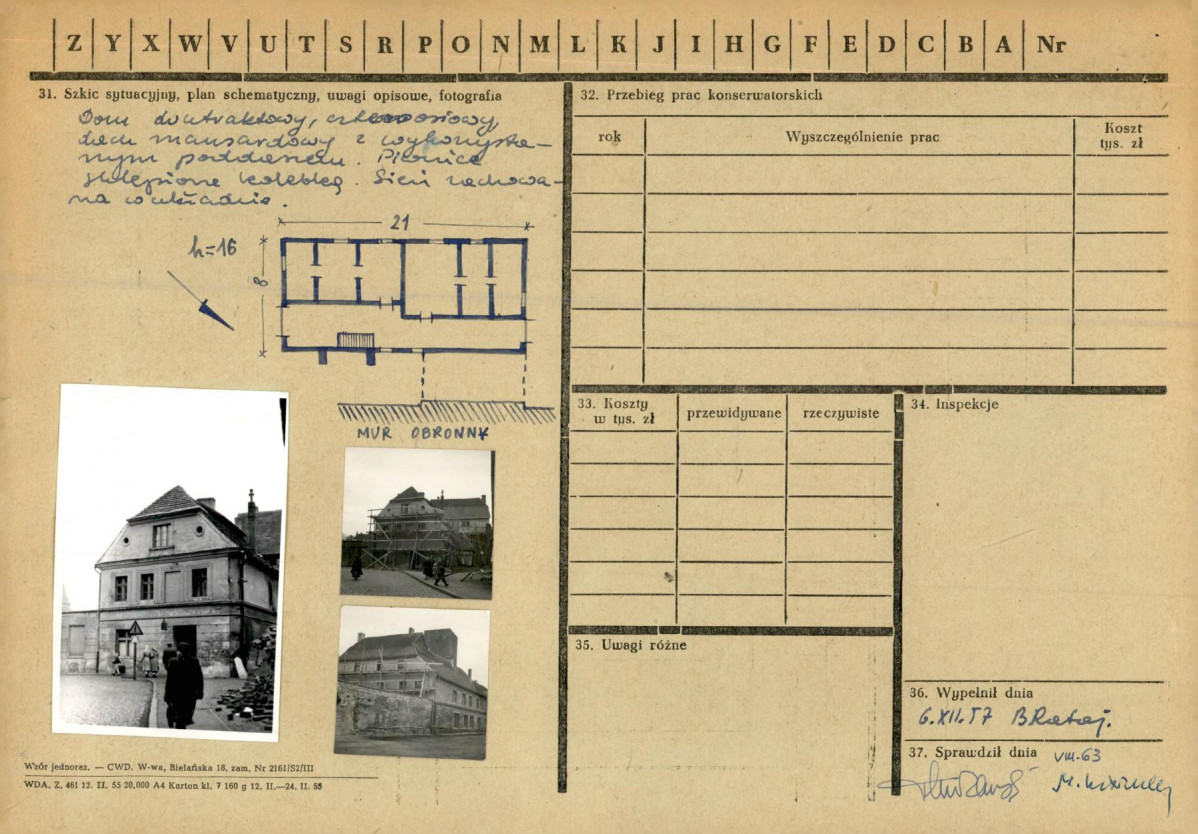 Z Y X W V U T S R P O N M L K J I H G F E D C B A Nr
31. Szkic sytuacyjny, plan schematyczny, uwagi opisowe, fotografia
Dom dwutraktowy, czteroosiowy,
dach mansardowy z wykorzysta-
nym poddaszem. Piwnice
sklepione kolebką. Sień zachowa-
na w układzie.
21
h=16
8
MUR OBRONNY
Wzór jednoraz. — CWD. W-wa, Bielańska 18, zam. Nr 2161/S2/III
WDA. Z. 461 12. II. 55 20,000 A4 Karton kl. 7 160 g 12. II.—24. II. 55
32. Przebieg prac konserwatorskich
rok
Wyszczególnienie prac
Koszt
tys. zł
33. Koszty
w tys. zł
przewidywane
rzeczywiste
34. Inspekcje
35. Uwagi różne
36. Wypełnił dnia
6.XII.57 B Rataj.
37. Sprawdził dnia
VIII-63